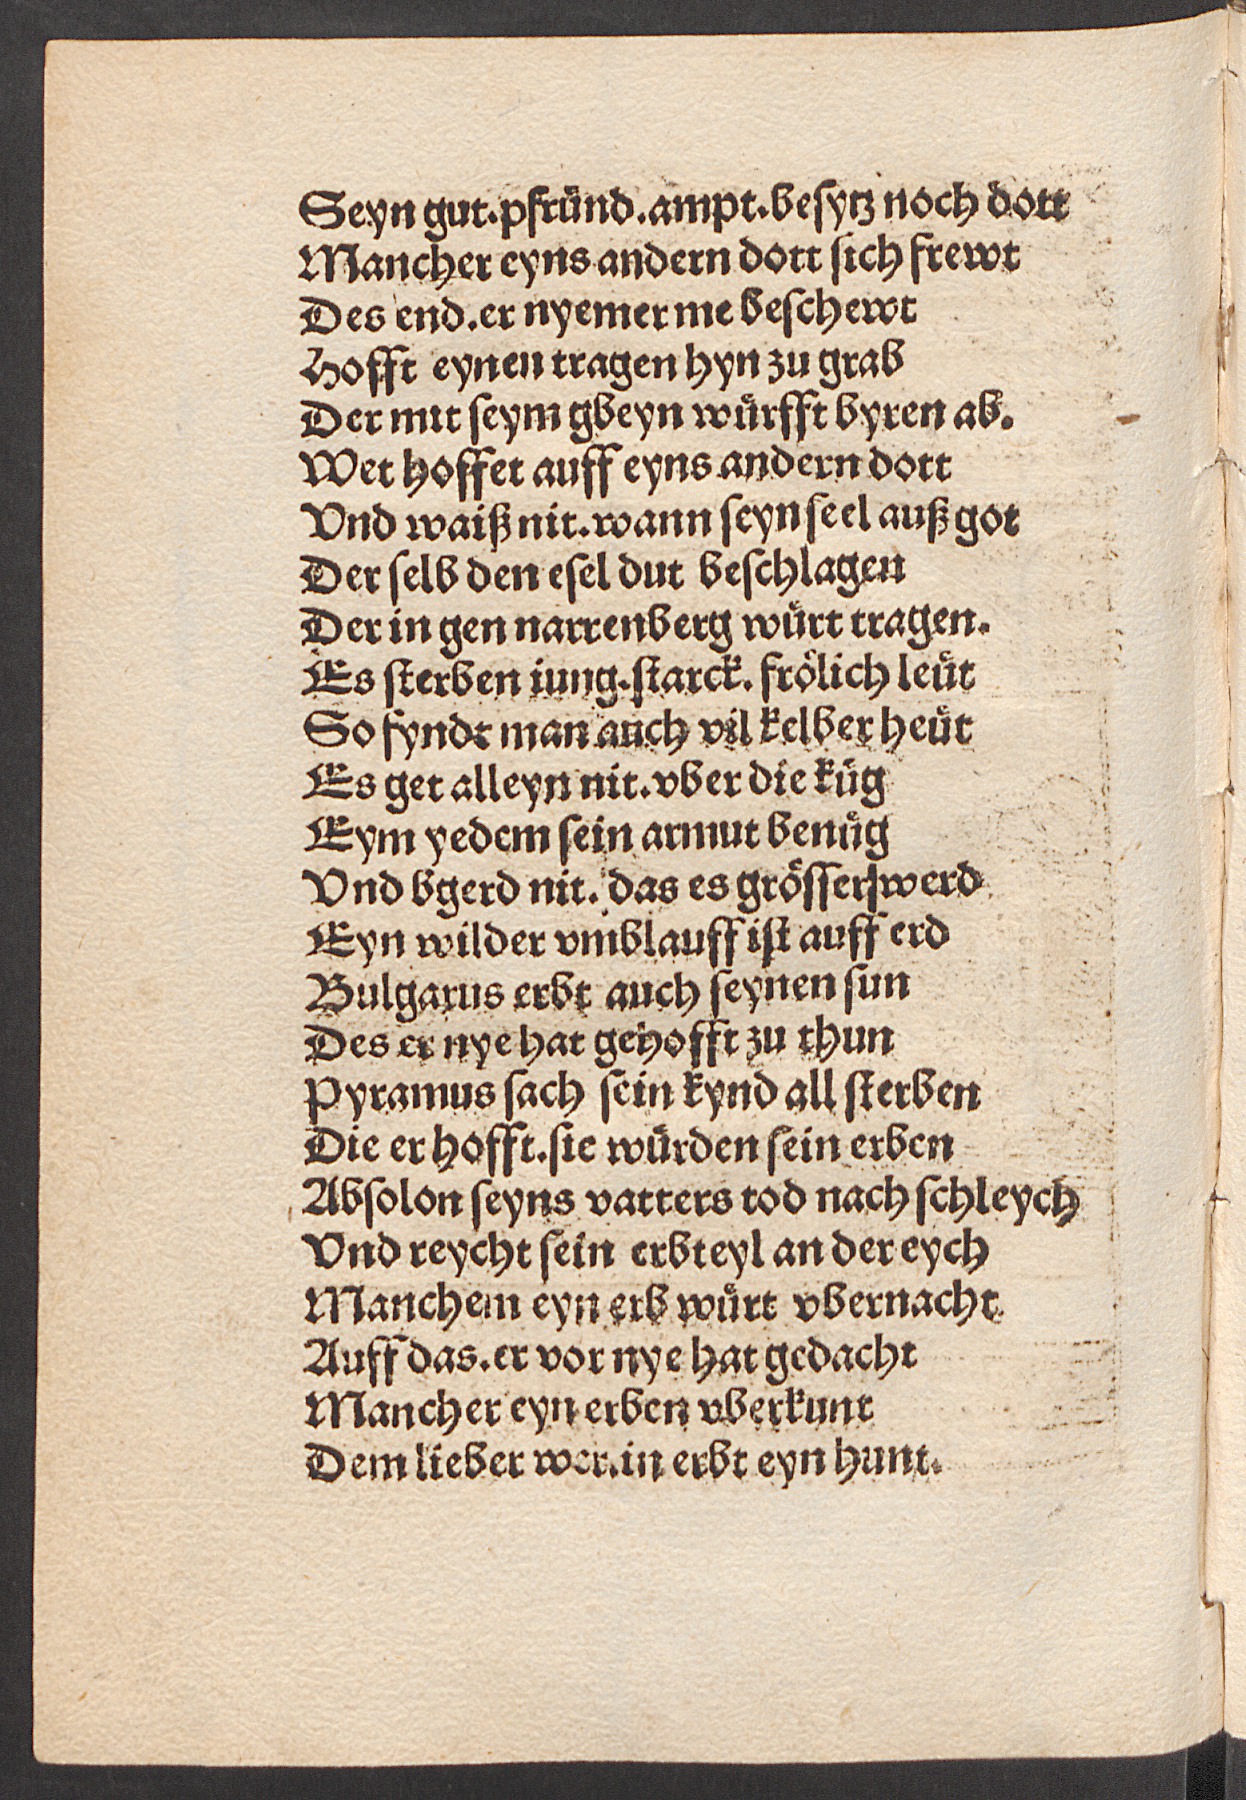 Seyn gut.pfründ.ampt.besytz noch dott
Mancher eyns andern dott sich frewt
Des end.er nyemer me beschewt
Hofft eynen tragen hyn zu grab
Der mit seym gbeyn würfft byren ab.
Wet hoffet auff eyns andern dott
Vnd waiß nit.wann seyn seel auß got
Der selb den esel dut beschlagen
Der in gen narrenberg würt tragen.
Es sterben iung.starck.frölich leüt
So fyndt man auch vil kelber heüt
Es get alleyn nit.vber die küg
Eym yedem sein armut benüg
Vnd bgerd nit.das es grösser werd
Eyn wilder vmblauff ist auff erd
Bulgarus erbt auch seynen sun
Des er nye hat gehofft zu thun
Pyramus sach sein kynd all sterben
Die er hofft.sie würden sein erben
Absolon seyns vatters tod nach schleych
Vnd reycht sein erbteyl an der eych
Manchem eyn erb würt vbernacht
Auff das.er vor nye hat gedacht
Mancher eyn erben vberkunt
Dem lieber wer.in erbt eyn hunt.